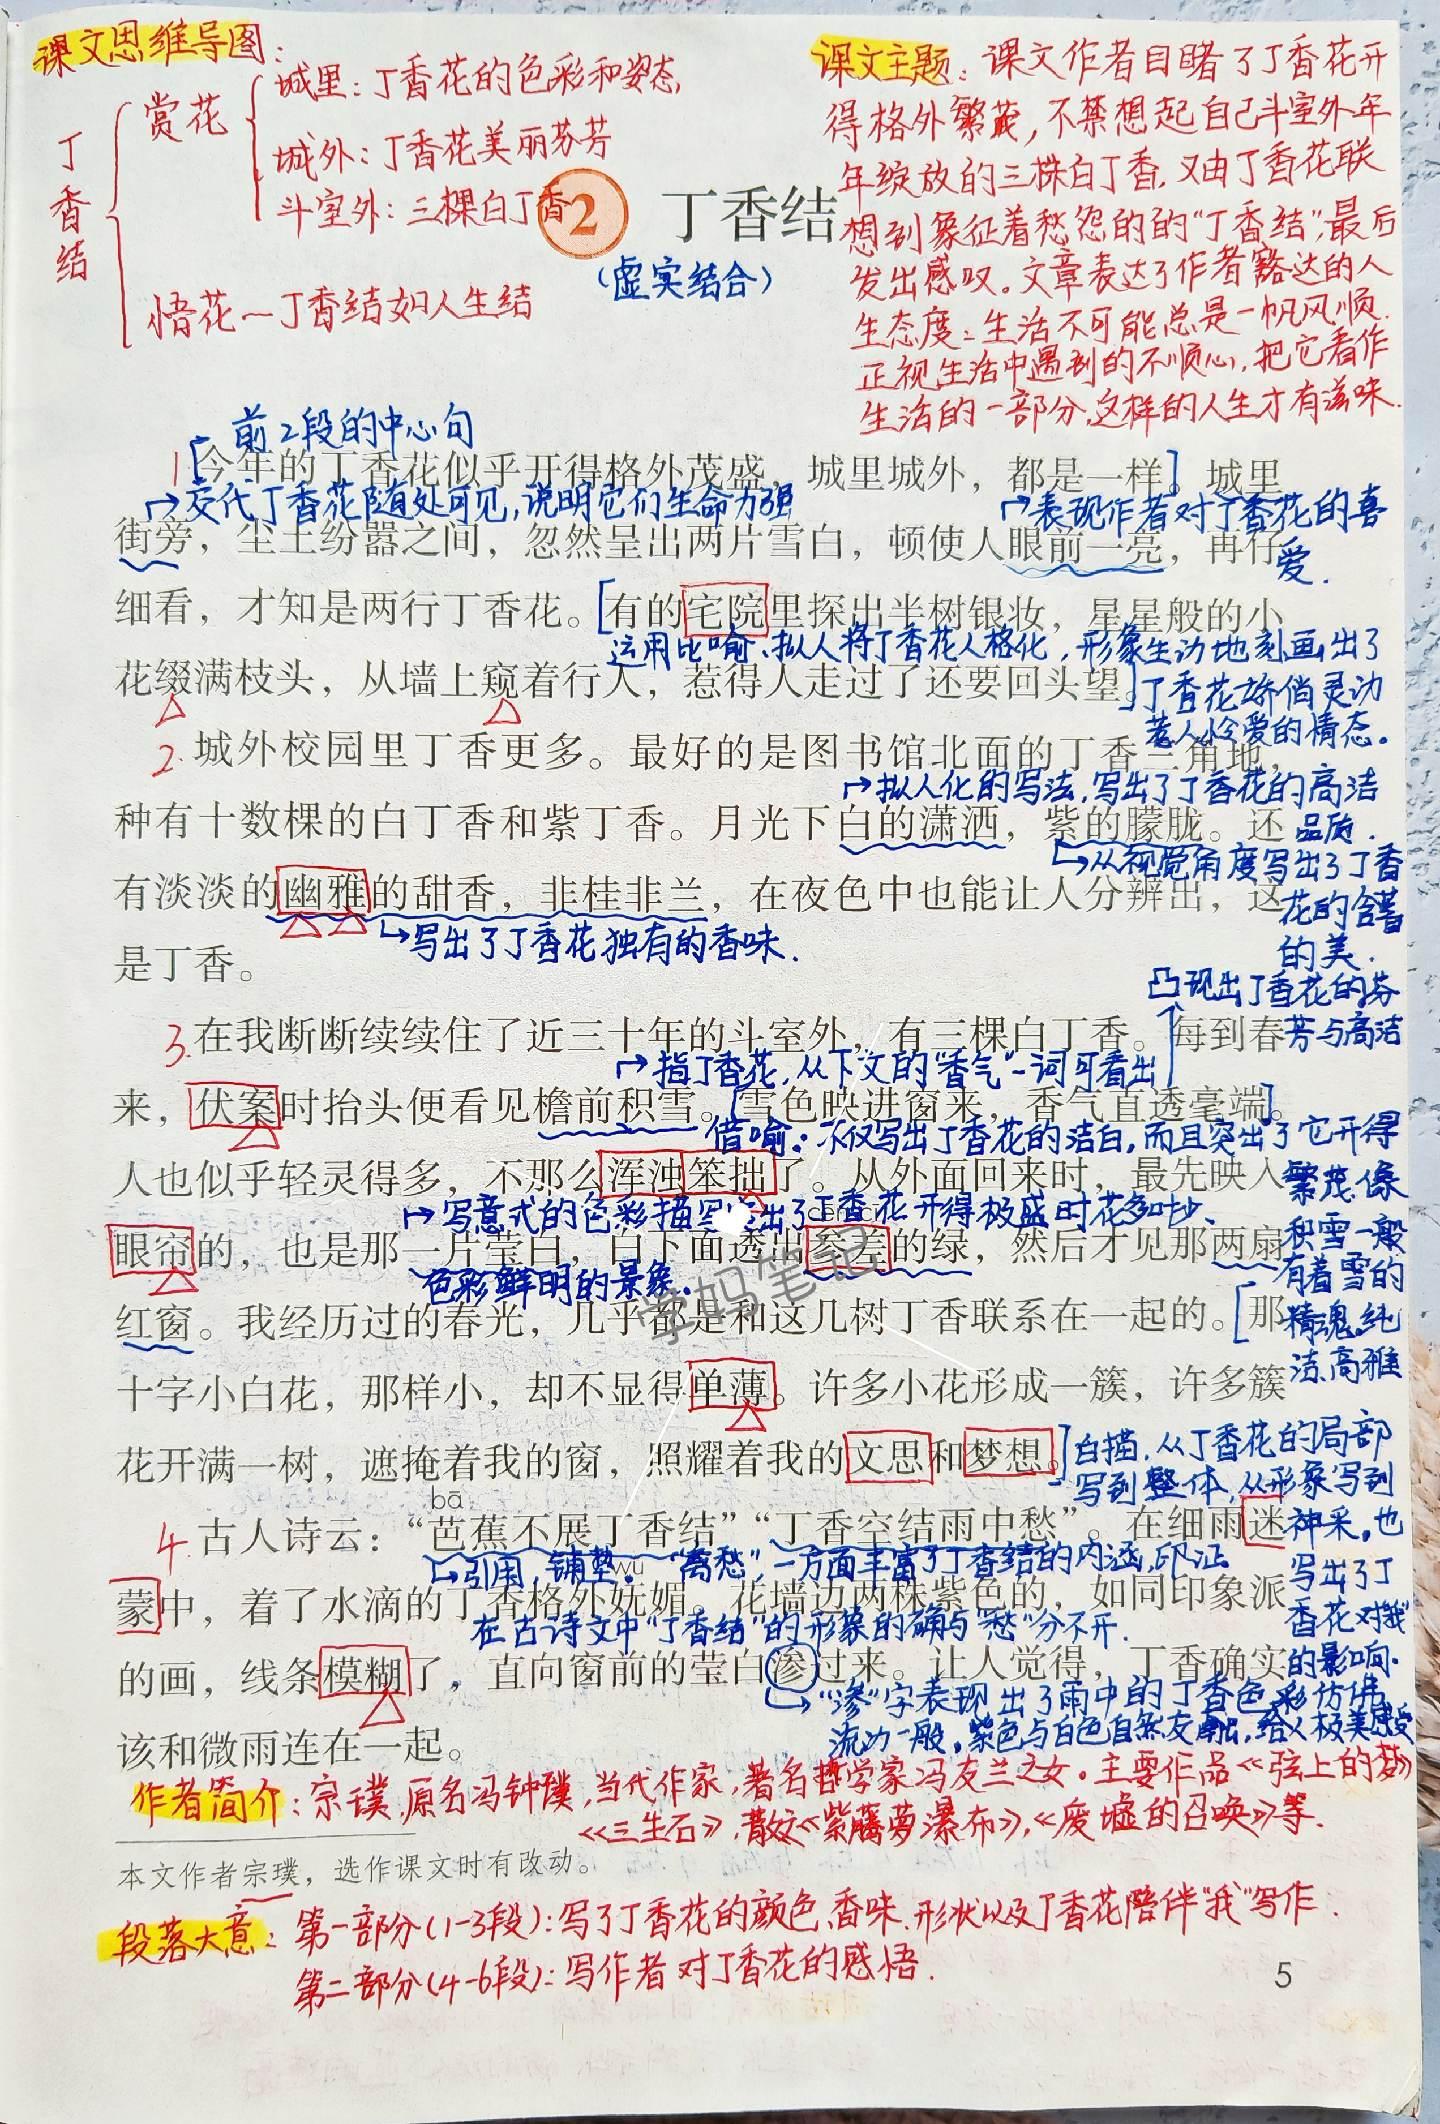 课文思维导图:
丁香结
赏花
城里:丁香花的色彩和姿态
城外:丁香花美丽芬芳
斗室外:三棵白丁香
悟花—丁香结如人生结
2 丁香结
(虚实结合)
课文主题:课文作者目睹了丁香花开
得格外繁茂,不禁想起自己斗室外年
年绽放的三株白丁香,又由丁香花联
想到象征着愁怨的的“丁香结”,最后
发出感叹。文章表达了作者豁达的人
生态度:生活不可能总是一帆风顺.
正视生活中遇到的不顺心,把它看作
生活的一部分,这样的人生才有滋味.
前2段的中心句
1 今年的丁香花似乎开得格外茂盛,城里城外,都是一样。城里
→交代丁香花随处可见,说明它们生命力强
→表现作者对丁香花的喜
爱.
街旁,尘土纷嚣之间,忽然呈出两片雪白,顿使人眼前一亮,再仔
细看,才知是两行丁香花。有的宅院里探出半树银妆,星星般的小
运用比喻、拟人将丁香花人格化,形象生动地刻画出了
丁香花娇俏灵动
惹人怜爱的情态。
花缀满枝头,从墙上窥着行人,惹得人走过了还要回头望。
2. 城外校园里丁香更多。最好的是图书馆北面的丁香三角地,
→拟人化的写法,写出了丁香花的高洁
品质.
种有十数棵的白丁香和紫丁香。月光下白的潇洒,紫的朦胧。还
→从视觉角度写出了丁香
花的含蓄
的美.
有淡淡的幽雅的甜香,非桂非兰,在夜色中也能让人分辨出,这
→写出了丁香花独有的香味.
是丁香。
凸现出丁香花的芬
芳与高洁
3. 在我断断续续住了近三十年的斗室外,有三棵白丁香。每到春
→指丁香花,从下文的“香气”一词可看出
来,伏案时抬头便看见檐前积雪。雪色映进窗来,香气直透毫端。
借喻:不仅写出丁香花的洁白,而且突出了它开得
繁茂,像
积雪一般
有着雪的
精魂,纯
洁、高雅
人也似乎轻灵得多,不那么浑浊笨拙了。从外面回来时,最先映入
→写意式的色彩描写写出了丁香花开得极盛时花多叶少、
色彩鲜明的景象.
眼帘的,也是那一片莹白,白下面透出参差的绿,然后才见那两扇
学妈笔记
红窗。我经历过的春光,几乎都是和这几树丁香联系在一起的。那
十字小白花,那样小,却不显得单薄。许多小花形成一簇,许多簇
花开满一树,遮掩着我的窗,照耀着我的文思和梦想。
白描,从丁香花的局部
写到整体,从形象写到
神采,也
写出了丁
香花对“我”
的影响.
bā
4. 古人诗云:“芭蕉不展丁香结”“丁香空结雨中愁”。在细雨迷
→引用,铺垫。“离愁”,一方面丰富了丁香结的内涵,印证
wǔ
蒙中,着了水滴的丁香格外妩媚。花墙边两株紫色的,如同印象派
在古诗文中“丁香结”的形象的确与“愁”分不开.
的画,线条模糊了,直向窗前的莹白渗过来。让人觉得,丁香确实
→“渗”字表现出了雨中的丁香色彩仿佛
流动一般,紫色与白色自然交融,给人极美感受
该和微雨连在一起。
作者简介:宗璞,原名冯钟璞,当代作家,著名哲学家冯友兰之女。主要作品《弦上的梦》
《三生石》,散文《紫藤萝瀑布》,《废墟的召唤》等.
本文作者宗璞,选作课文时有改动。
段落大意:第一部分(1-3段):写了丁香花的颜色、香味、形状以及丁香花陪伴“我”写作.
第二部分(4-6段):写作者对丁香花的感悟.
5